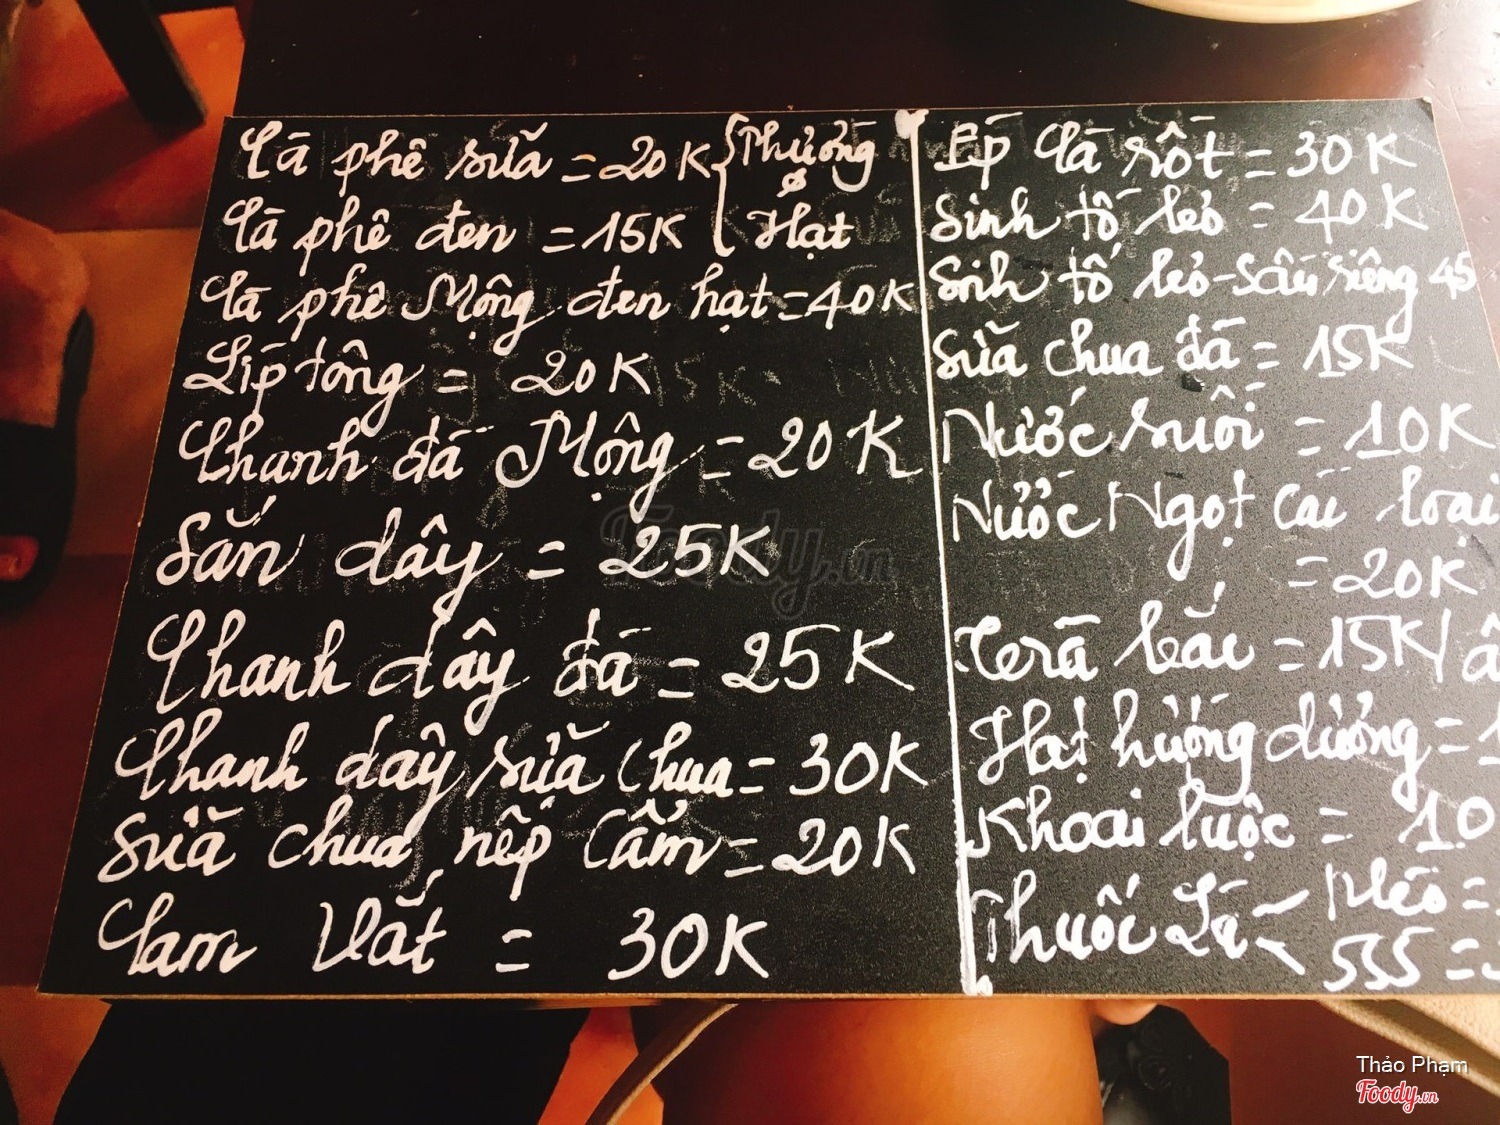 Cà phê sữa = 20K { Phượng
ø
Cà phê đen = 15K Hạt
Cà phê Mộng đen hạt = 40K
Líp tông = 20K
Chanh đá Mộng = 20K
Sắn dây = 25K
Chanh dây đá = 25K
Chanh dây sữa chua = 30K
Sữa chua nếp Cẩm = 20K
Cam Vắt = 30K
Ép Cà rốt = 30K
Sinh tố bơ = 40K
Sinh tố bơ - Sầu riêng 45
Sữa chua đá = 15K
Nước suối = 10K
Nước Ngọt Cái loại
= 20K
Trà bắc = 15K/ấ
Hạt hướng dương = 1
Khoai luộc = 10
Thuốc Lá < Mèo =
555 =
Foody.vn
Thảo Phạm
Foody.vn